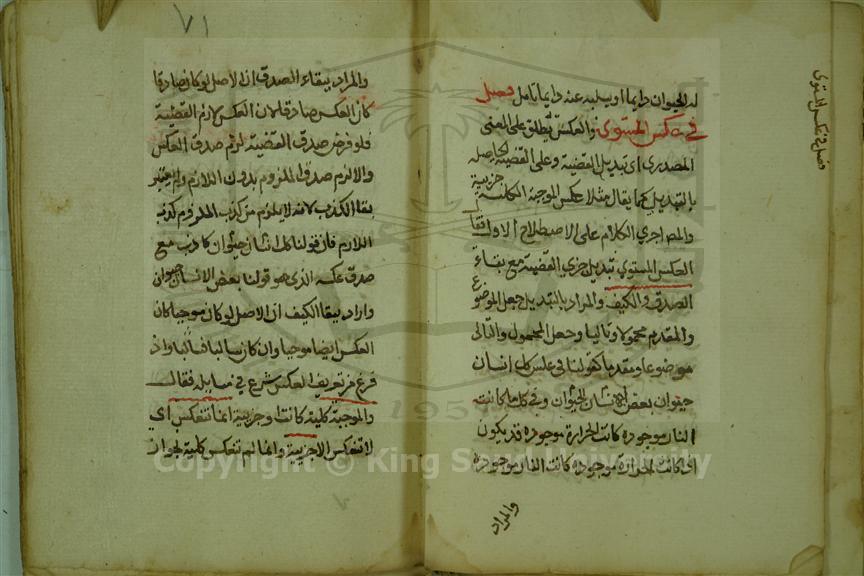 فصل في عكس المستوى
له الحيوان دايما او يسلبه عنه دايما تامل فصل
في عكس المستوى والعكس يطلق على المعنى
المصدري اى تبديل القضية وعلى القضية الحاصله
بالتبديل كما يقال مثلا عكس الموجبة الكلية جزيية
والمص اجري الكلام على الاصطلاح الاول فقا
العكس المستوي تبديل جزي القضية مع بقاء
الصدق والكيف والمراد بالتبديل جعل الموضوع
والمقدم محمولا وتاليا وجعل المحمول والتالى
موضوعا ومقدما كقولنا في عكس كل انسان
حيوان بعض انسان الحيوان وفي كلما كانت
النار موجوده كانت الحرارة موجوده قد يكون
اذا كانت الحرارة موجوده كانت النار موجوده
والمراد
٧١
والمراد ببقاء الصدق ان الاصل لو كان صادقا
كان العكس صادقا لان العكس لازم القضية
فلو فرض صدق القضية لزم صدق العكس
والا لزم صدق الملزوم بدون اللازم ولم يعتبر
بقا الكذب لانه لا يلزم من كذب الملزوم كذب
اللازم فان قولنا كل انسان حيوان كاذب مع
صدق عكسه الذى هو قولنا بعض الانسان حيوان
واراد ببقا الكيف ان الاصل لو كان موجبا كان
العكس ايضا موجبا وان كان سالبا فسالبا واذ
فرغ من تعريف العكس شرع في مسايله فقال
والموجبة كلية كانت او جزيية انما تنعكس اي
لا تنعكس الا جزيية وانما لم تنعكس كلية لجوان
Copyright © King Saud University
1957